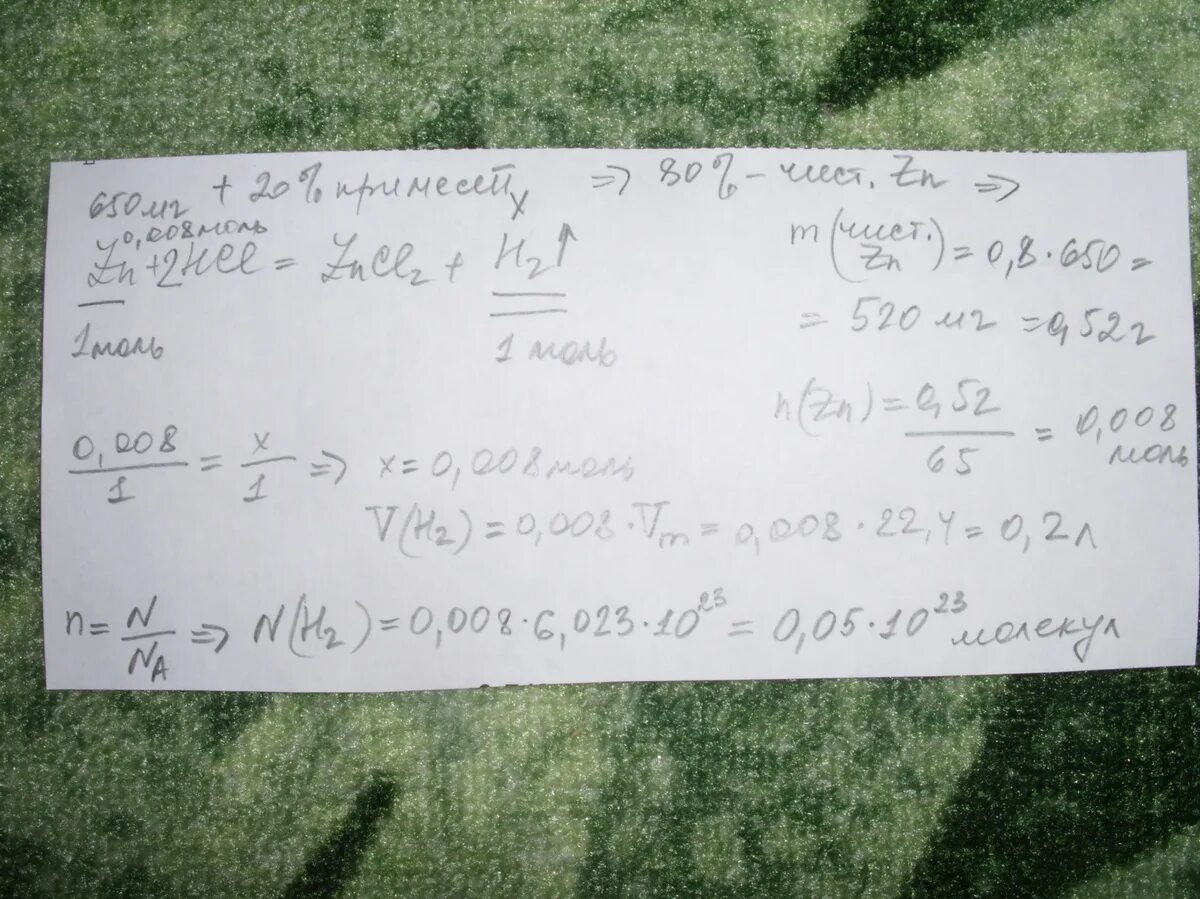 650 мг + 20% примесей ⇒ 80% - чист. Zn ⇒
0,008 моль x
Zn + 2HCl = ZnCl₂ + H₂↑
1 моль 1 моль
m(чист. Zn) = 0,8·650 =
= 520 мг = 0,52 г
n(Zn) = 0,52/65 = 0,008 моль
0,008/1 = x/1 ⇒ x = 0,008 моль
V(H₂) = 0,008·Vm = 0,008·22,4 = 0,2 л
n = N/N_A ⇒ N(H₂) = 0,008·6,023·10²³ = 0,05·10²³ молекул